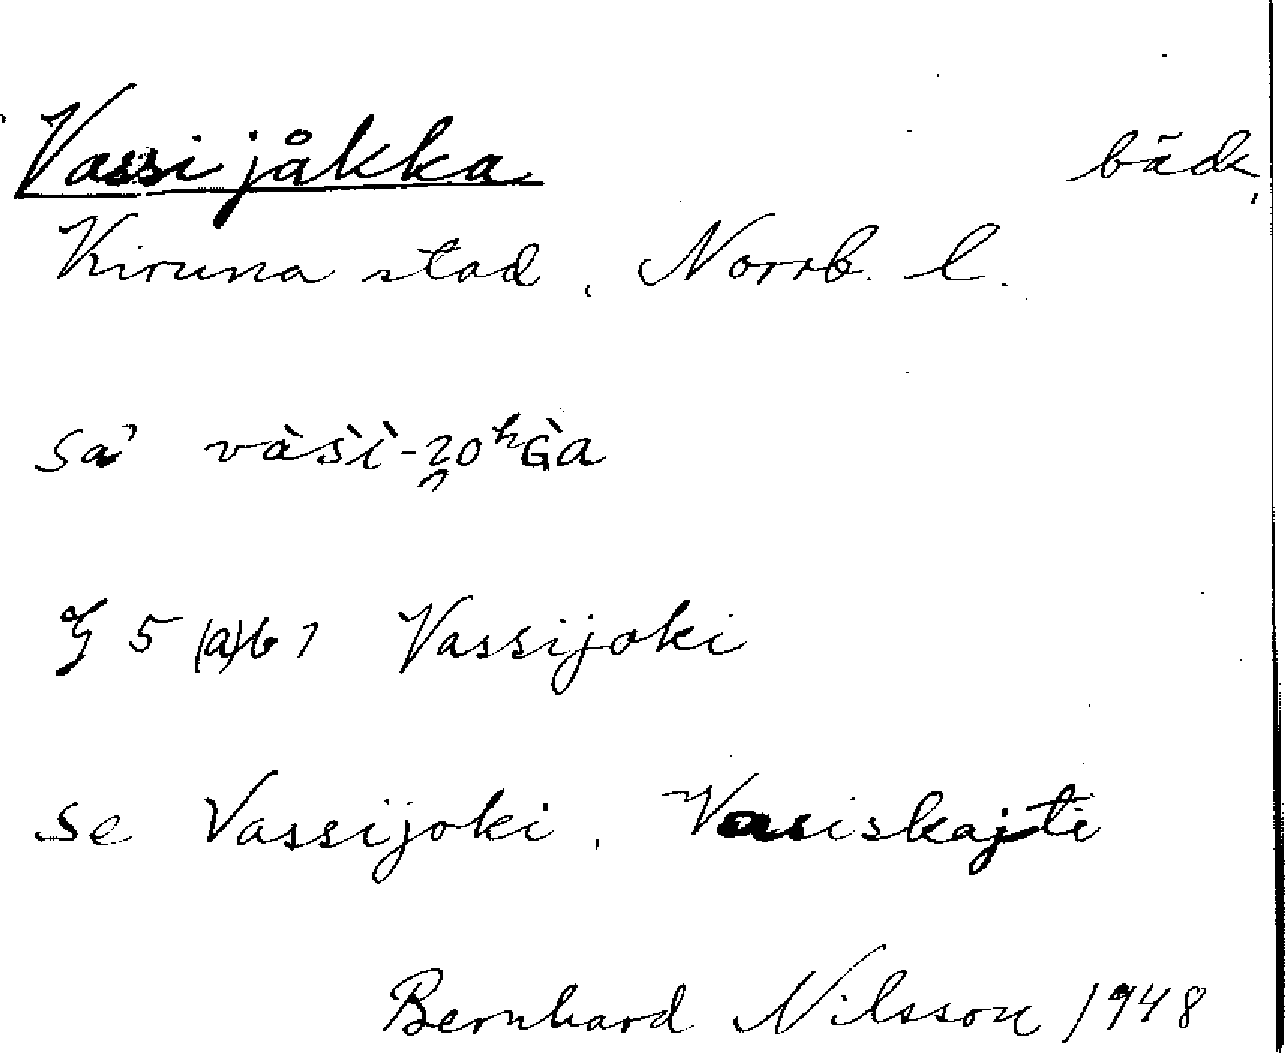 Vassijåkka bäck,
Kiruna stad, Norrb. l.
sa' vàsì-2oʰGa
§ 5 (a)b1 Vassijoki
se Vassijoki, Vasiskajti
Bernhard Nilsson 1948